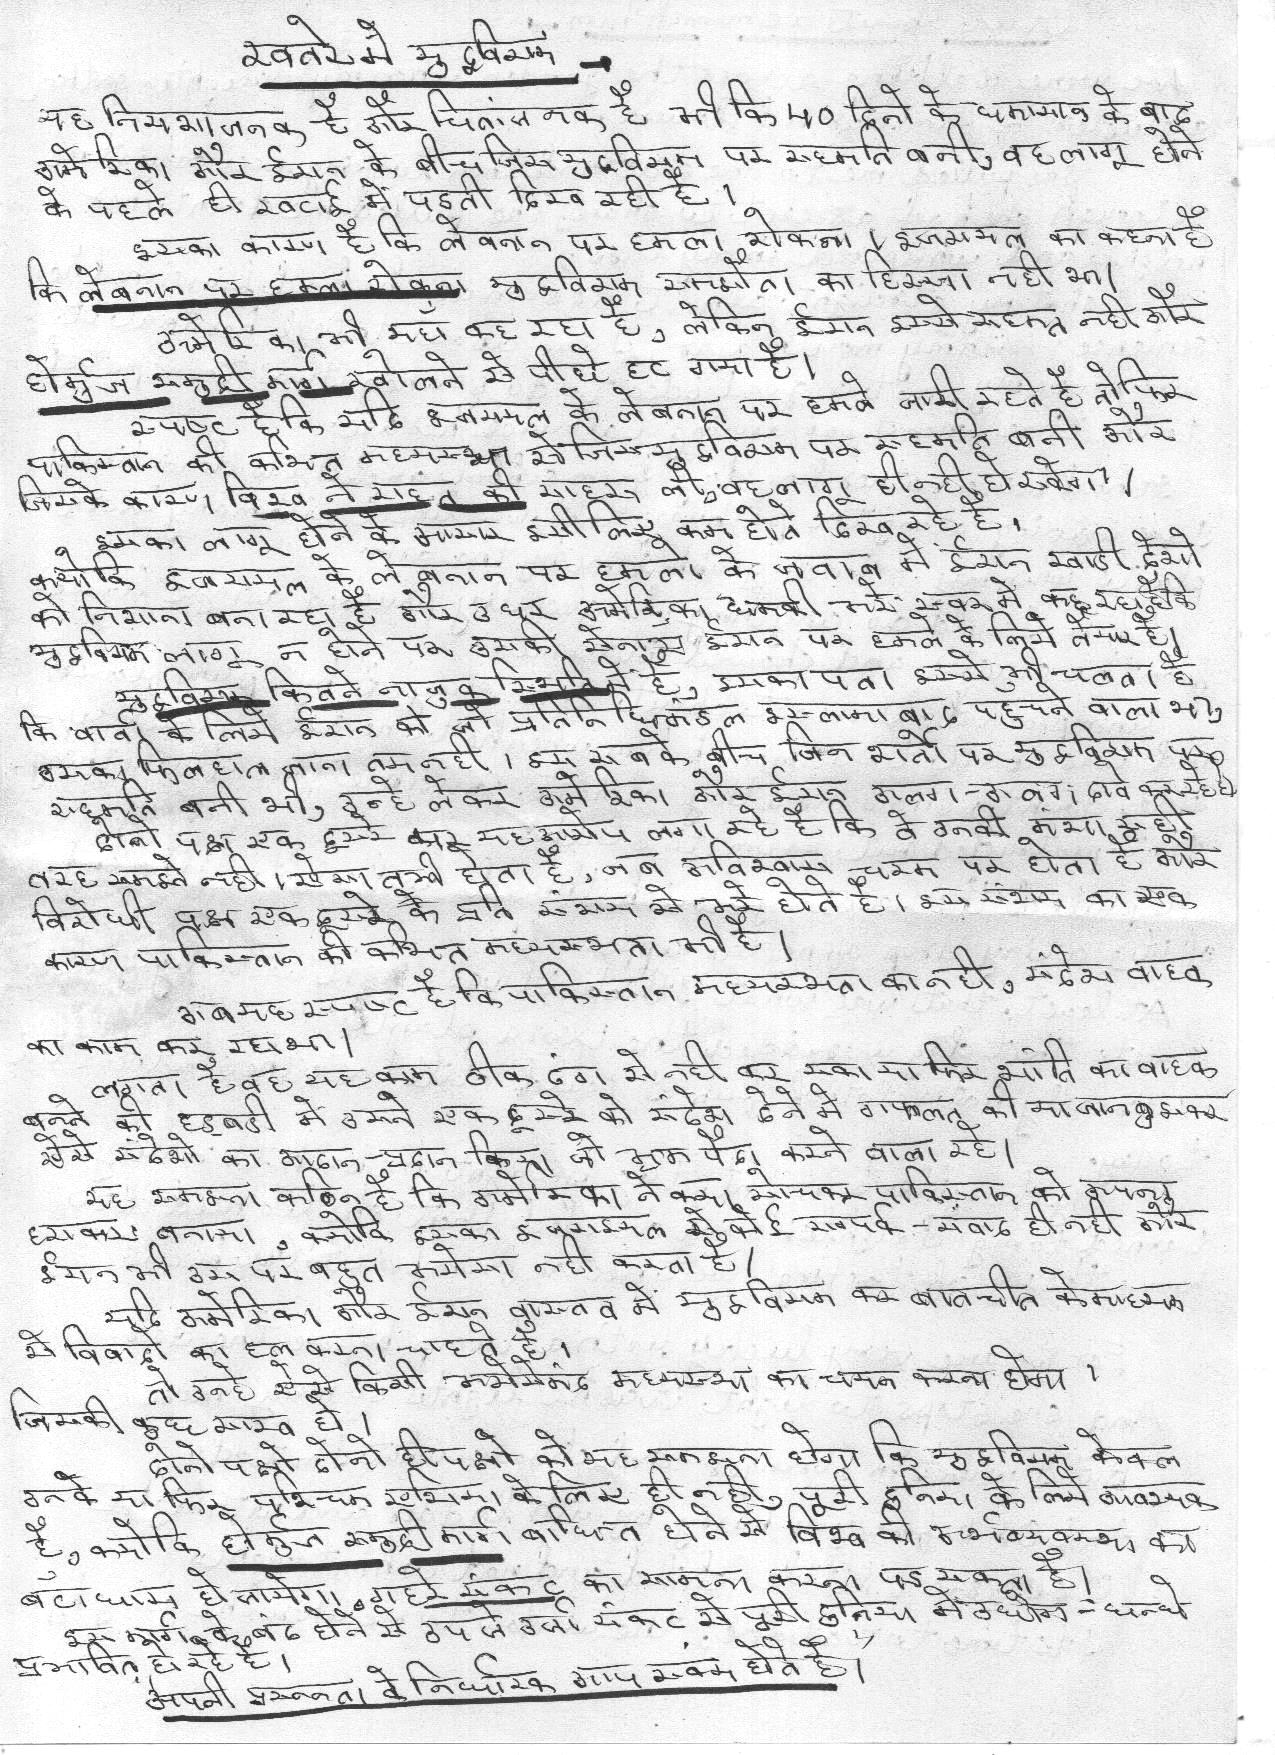 खतरे में युद्धविराम →
यह निराशाजनक है और चिंताजनक है भी कि 40 दिनों के घमासान के बाद
अमेरिका और ईरान के बीच जिस युद्धविराम पर सहमति बनी, वह लागू होने
के पहले ही खटाई में पड़ती दिख रही है।
इसका कारण है कि लेबनान पर हमला रोकना। इजरायल का कहना है
कि लेबनान पर हमला रोकना युद्धविराम समझौता का हिस्सा नही था।
अमेरिका भी यही कह रहा है, लेकिन ईरान इससे सहमत नही और
होर्मुज समुद्री मार्ग खोलने से पीछे हट गया है।
स्पष्ट है कि यदि इजरायल के लेबनान पर हमले जारी रहते है तो फिर
पाकिस्तान की कथित मध्यस्थता से जिस युद्धविराम पर सहमति बनी और
जिसके कारण विश्व ने राहत की सांस ली, वह लागू ही नही हो सकेगा।
इसका लागू होने के आसार इसीलिए कम होते दिख रहे है।
क्योकि इजरायल के लेबनान पर हमलो के जवाब में ईरान खाडी देशो
को निशाना बना रहा है और उधर अमेरिका धमकी भरे स्वर मे कह रहा है कि
युद्धविराम लागू न होने पर उसकी सेनाएं ईरान पर हमले के लिये तैयार है।
युद्धविराम कितने नाजुक स्थिति में है, इसका पता इससे भी चलता है
कि वार्ता के लिये ईरान का जो प्रतिनिधिमंडल इस्लामाबाद पहुचने वाला था,
उसका फिलहाल जाना तय नही। इस सबके बीच जिन शर्तो पर युद्धविराम पर
सहमति बनी थी, उन्हे लेकर अमेरिका और ईरान अलग-अलग दावे कर रहे है
दोनो पक्ष एक दूसरे पर यह आरोप लगा रहे है कि वे उनकी मंशा सही
तरह समझे नही। ऐसा तभी होता है, जब अविश्वास चरम पर होता है और
विरोधी पक्ष एक दूसरे के प्रति संशय से भरे होते है। इस संशय का एक
कारण पाकिस्तान की कथित मध्यस्थता भी है।
अब यह स्पष्ट है कि पाकिस्तान मध्यस्थता का नही, संदेश वाहक
का काम कर रहा था।
लगता है वह यह काम ठीक ढंग से नही कर सका या फिर शांति का वाहक
बनने की हड़बडी में उसने एक दूसरे को संदेश देने मे गफलत की या जानबुझकर
ऐसे संदेशो का आदान-प्रदान किया जो भ्रम पैदा करने वाला रहे।
यह समझना कठिन है कि अमेरिका ने क्या सोचकर पाकिस्तान को अपना
हरकारा बनाया, क्योकि इसका इजराइल से कोई सम्पर्क-संवाद ही नही और
ईरान भी उस पर बहुत भरोसा नही करता है।
यदि अमेरिका और ईरान वास्तव में युद्धविराम कर बातचीत के माध्यम
से विवादो का हल करना चाहते है।
तो उन्हे ऐसे किसी भरोसेमंद मध्यस्था का चयन करना होगा।
जिसकी कुछ साख हो।
दोनो पक्षो दोनो ही पक्षो को यह समझना होगा कि युद्धविराम केवल
उनके या फिर पश्चिम एशिया के लिए ही नही, पूरी दुनिया के लिये आवश्यक
है, क्योकि होर्मुज समुद्री मार्ग बाधित होने से विश्व की अर्थव्यवस्था का
बंटाधार हो जायेगा, गहरे संकट का सामना करना पड़ सकता है।
इस मार्ग के बंद होने से उपजे उर्जा संकट से पूरी दुनिया में उधोग-धन्धे
प्रभावित हो रहे है।
अपनी प्रसन्नता के निर्धारक आप स्वयं होते है।